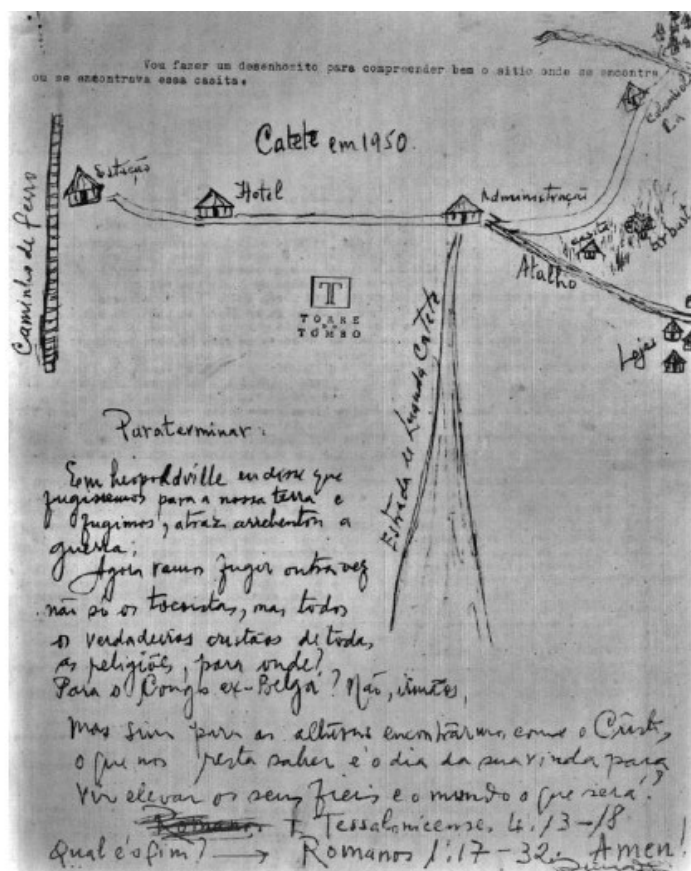 Vou fazer um desenhozito para compreender bem o sitio onde se encontra
ou se encontrava essa casita.
Catete em 1950.
Estação
Hotel
Administração
Caminho de ferro
casita
Atalho
Lojas
T
TORRE
DO
TOMBO
Estrada de Luanda Catete
Para terminar:
Em Leopoldville eu disse que
fugissemos para a nossa terra e
fugimos, atraz arrebentou a
guerra;
Agora vamos fugir outra vez
não só os tocoistas, mas todos
os verdadeiros cristãos de todas
as religiões, para onde?
Para o Congo ex-Belga? Não, irmãos,
Mas sim para as alturas encontrarmo, com o Cristo,
o que nos resta saber é o dia da sua vinda para
vir elevar os seus fieis e o mundo o que será?
Romanos I Tessalonicenses 4:13-18
Qual é o fim? → Romanos 1:17-32. Amen!